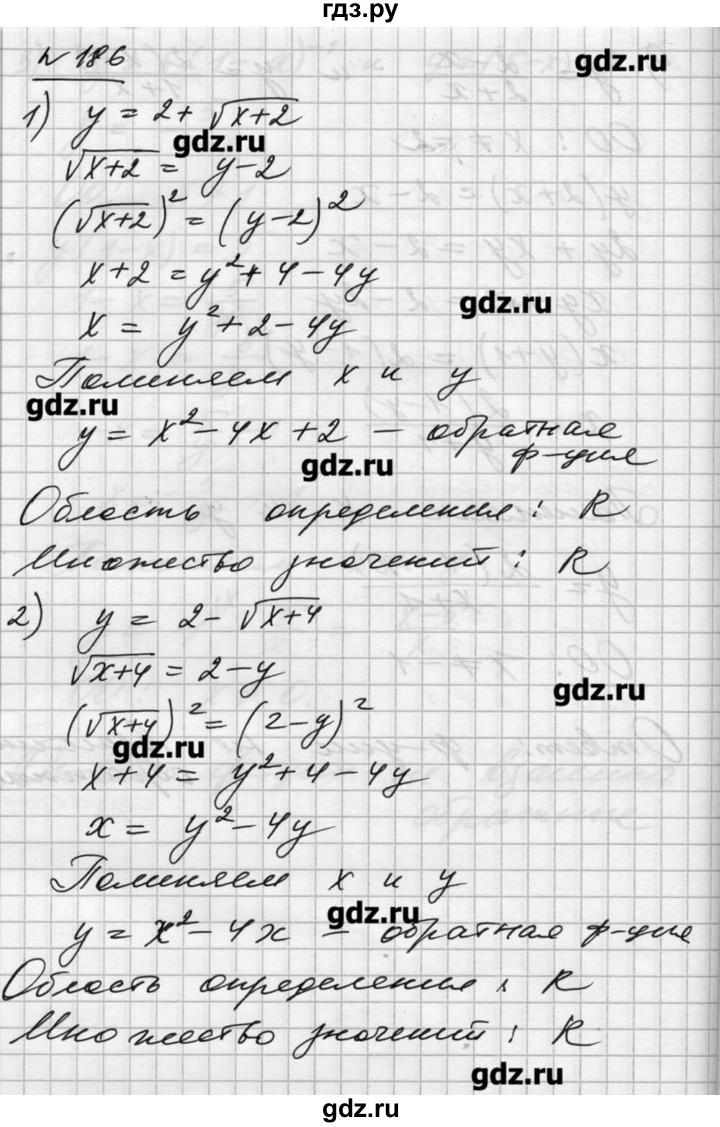 гдз.ру
№ 186
gdz.ru
1) y = 2 + √(x+2)
gdz.ru
√(x+2) = y-2
(√(x+2))² = (y-2)²
x+2 = y²+4-4y
gdz.ru
x = y²+2-4y
Поменяем x и y
gdz.ru
y = x²-4x+2 - обратная
ф-ция
gdz.ru
Область определения: R
Множество значений: R
2) y = 2-√(x+4)
√(x+4) = 2-y
gdz.ru
(√(x+4))² = (2-y)²
gdz.ru
x+4 = y²+4-4y
x = y²-4y
Поменяем x и y
gdz.ru
y = x²-4x - обратная ф-ция
Область определения: R
Множество значений: R
gdz.ru
gdz.ru